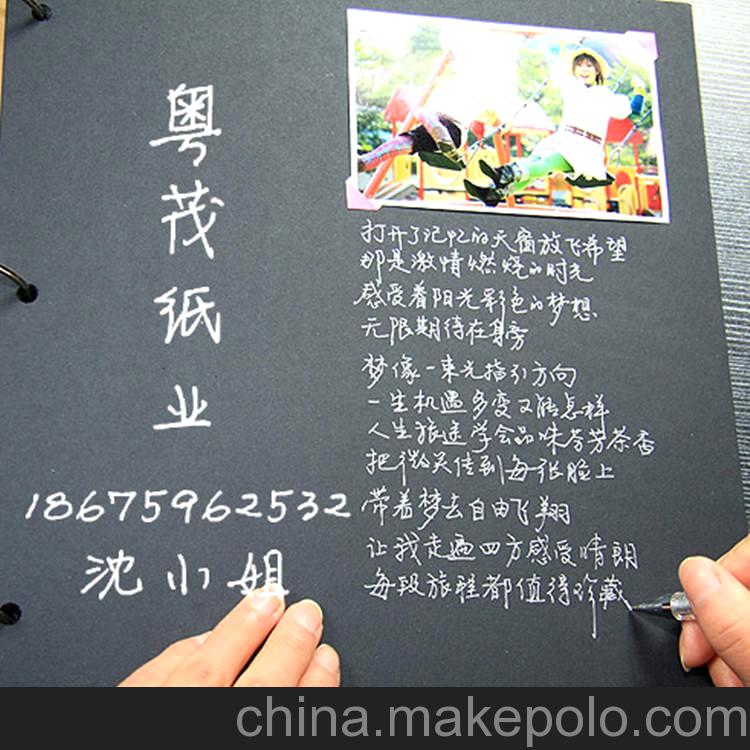 粤
茂
纸
业
18675962532
沈小姐
打开了记忆的天窗放飞希望
那是激情燃烧的时光
感受着阳光彩色的梦想
无限期待在身旁
梦像一束光指引方向
一生机遇多变又能怎样
人生旅途学会品味芬芳茶香
把微笑传到每张脸上
带着梦去自由飞翔
让我走遍四方感受晴朗
每段旅程都值得珍藏
china.makepolo.com